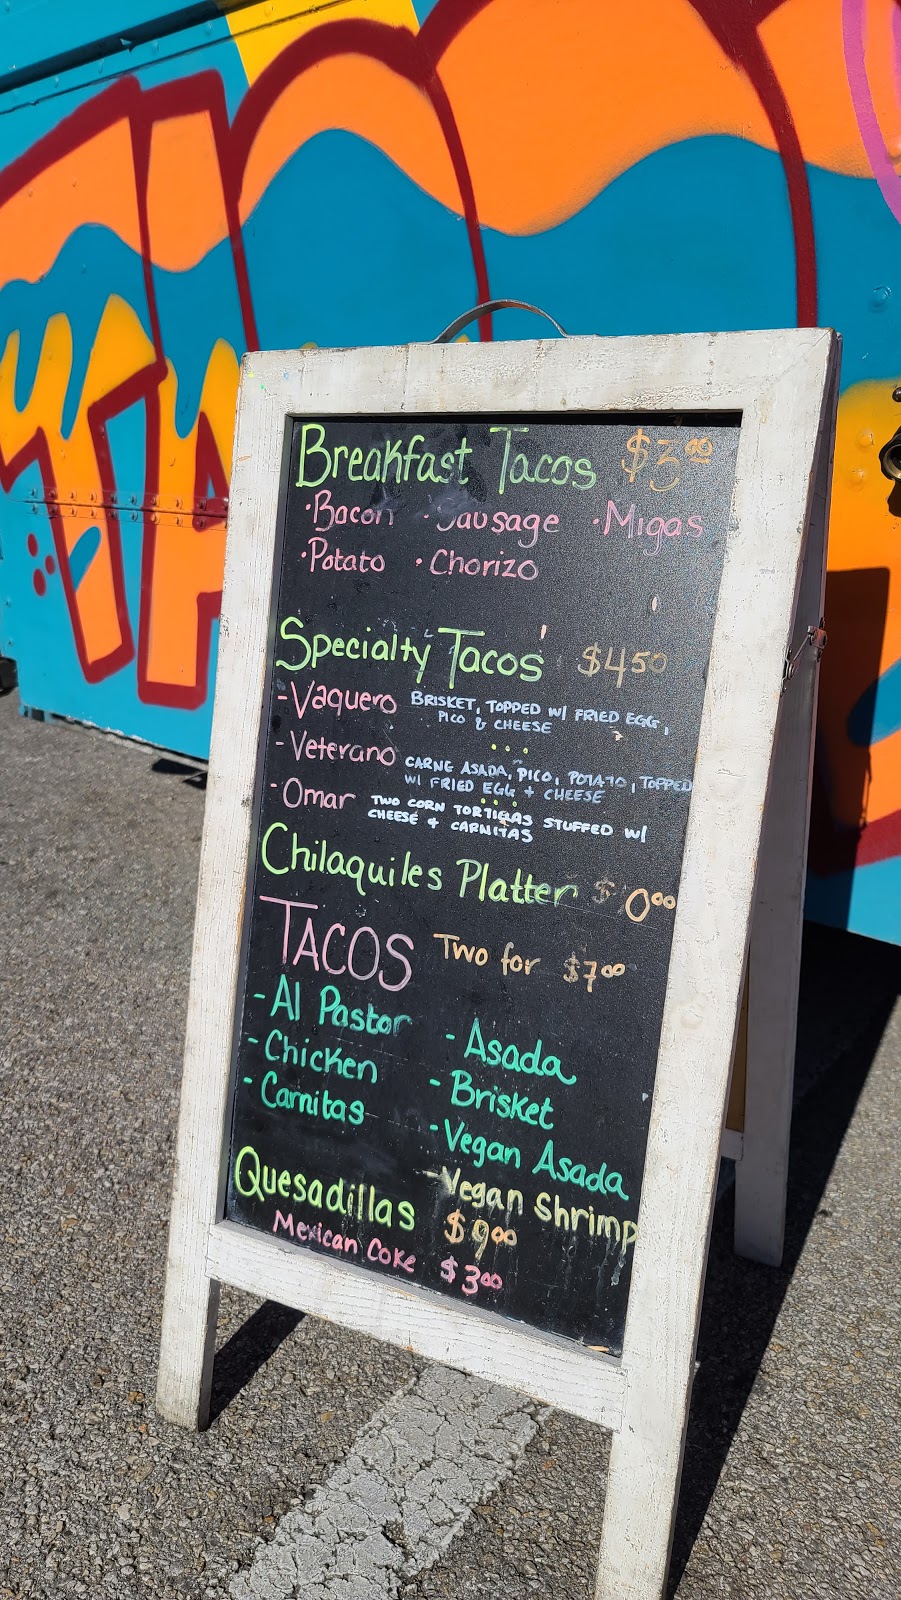 Breakfast Tacos $3.00
·Bacon ·Sausage ·Migas
·Potato ·Chorizo
Specialty Tacos $4.50
-Vaquero BRISKET, TOPPED W/ FRIED EGG,
PICO & CHEESE
-Veterano CARNE ASADA, PICO, POTATO, TOPPED
W/ FRIED EGG + CHEESE
-Omar TWO CORN TORTILLAS STUFFED W/
CHEESE + CARNITAS
Chilaquiles Platter $ 0.00
TACOS Two for $7.00
-Al Pastor
-Chicken
-Carnitas
-Asada
-Brisket
-Vegan Asada
-Vegan Shrimp
Quesadillas $9.00
Mexican Coke $3.00